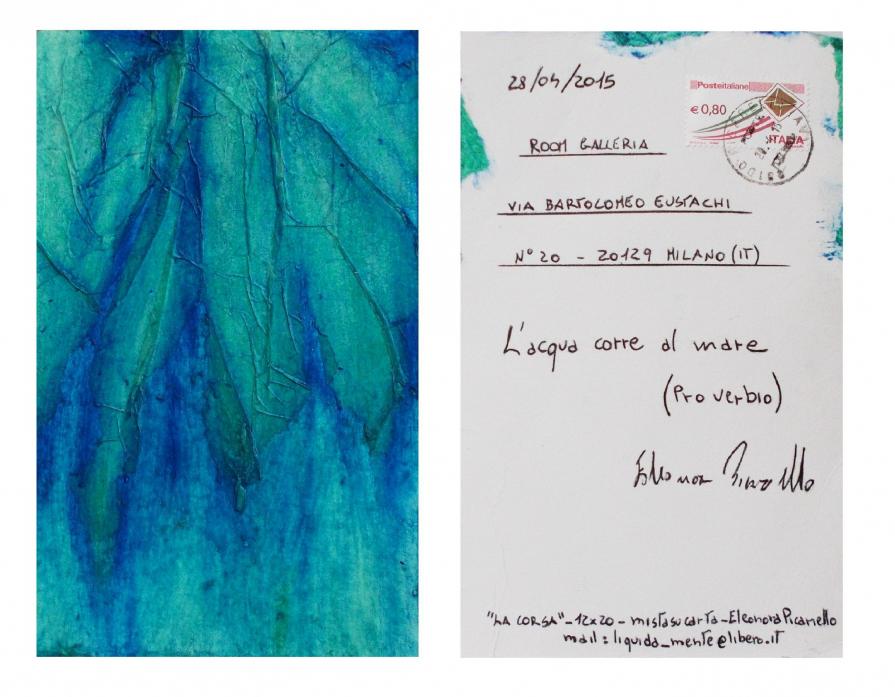 28/04/2015
Posteitaliane
€ 0,80
ITALIA
ROOM GALLERIA
VIA BARTOLOMEO EUSTACHI
N° 20 - 20129 MILANO (IT)
L'acqua corre al mare
(Proverbio)
"LA CORSA" - 12x20 - mista su carta - Eleonora Picariello
mail : liquida_mente@libero.it